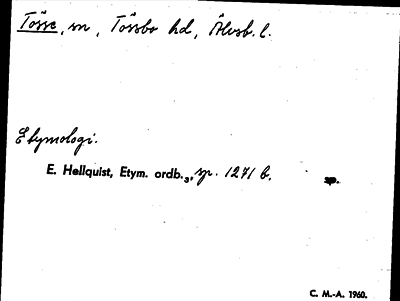 Tösse, sn, Tössbo hd, Älvsb. l.
Etymologi.
E. Hellquist, Etym. ordb.₃, sp. 1271 b.
C. M.-A. 1960.